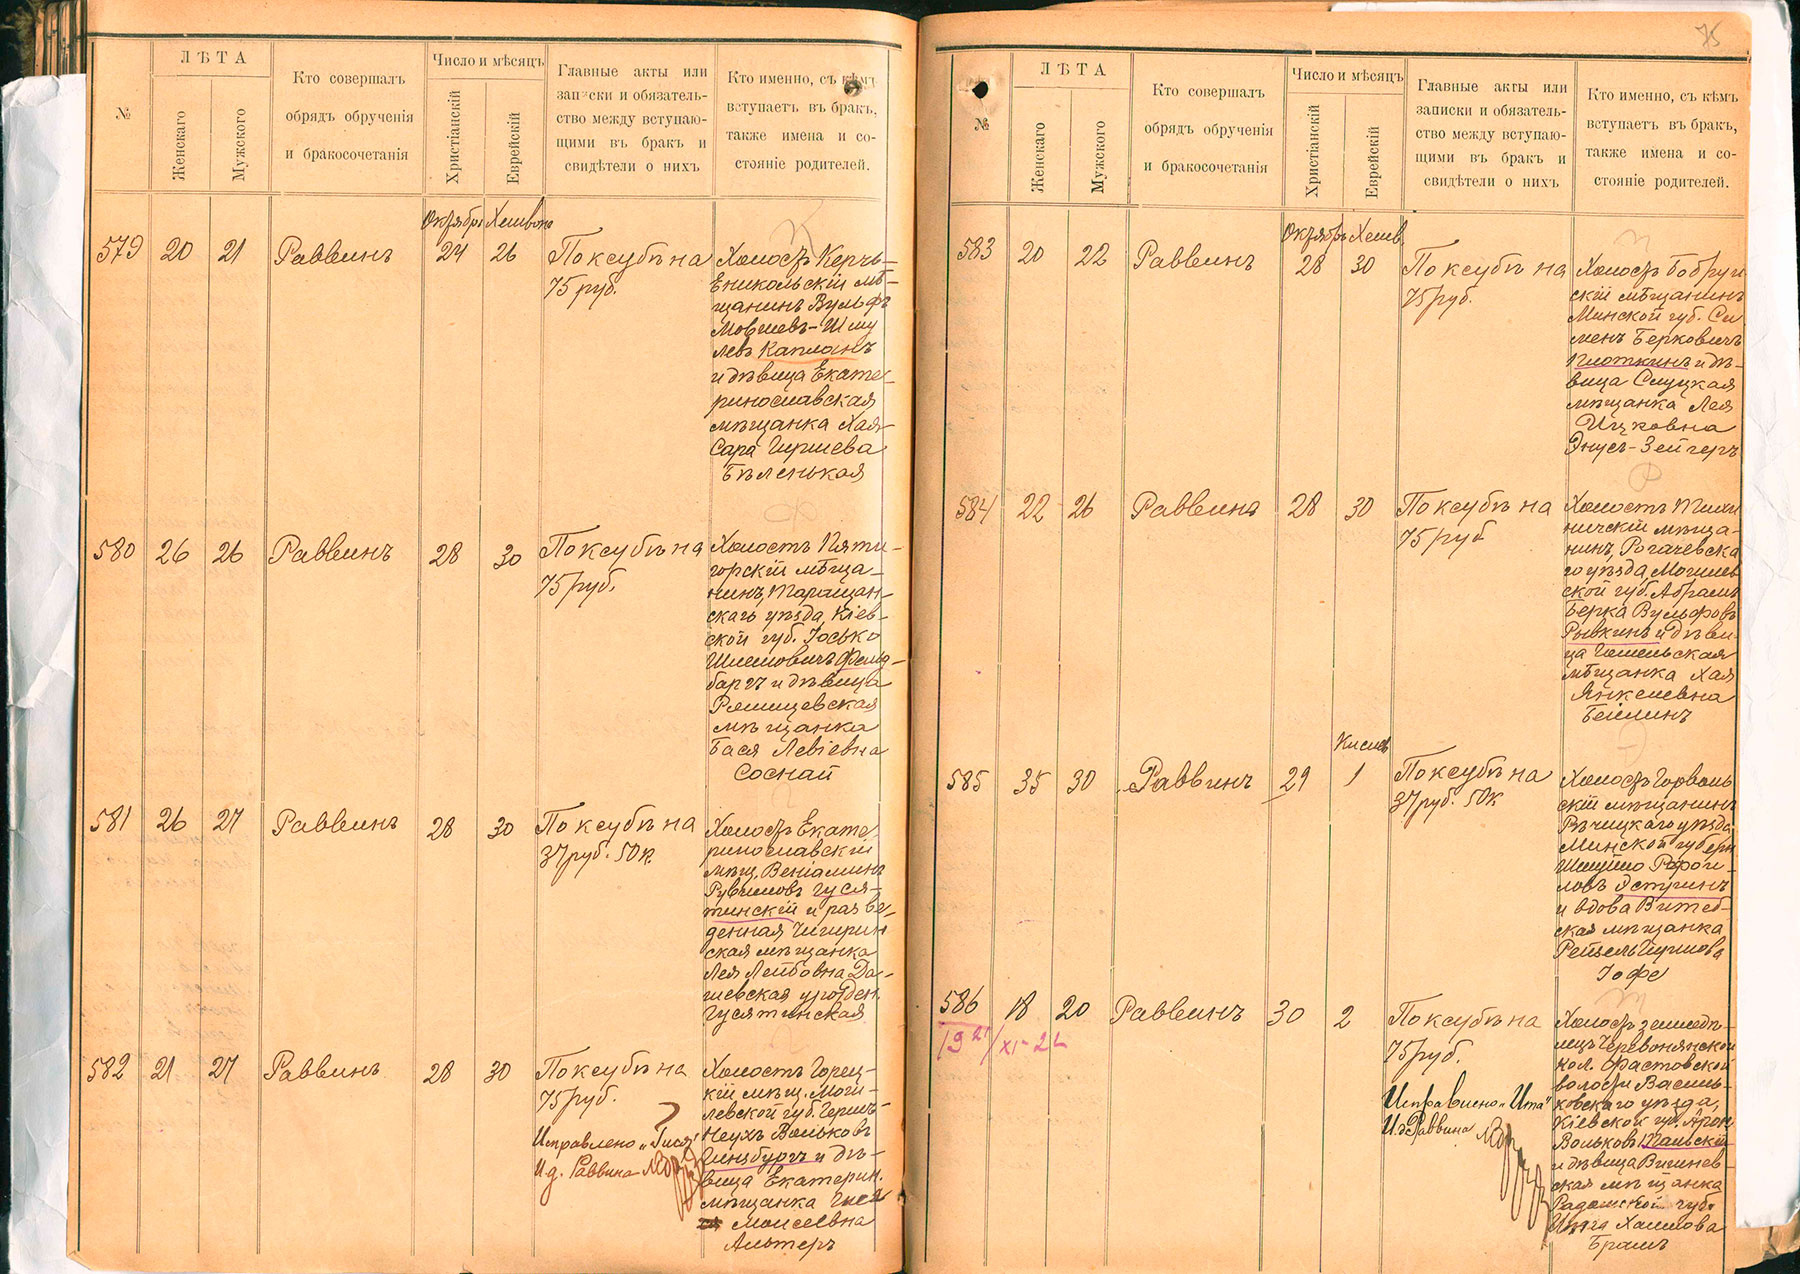 №
ЛѢТА
Женскаго
Мужского
Кто совершалъ
обрядъ обрученія
и бракосочетанія
Число и мѣсяцъ
Христіанскій
Еврейскій
Главные акты или
записки и обязатель-
ство между вступаю-
щими въ бракъ и
свидѣтели о нихъ
Кто именно, съ кѣмъ
вступаетъ въ бракъ,
также имена и со-
стояніе родителей.
Октябрь Хешвона
579 20 21 Раввинъ 24 26
По ксубѣ на
75 руб.
Холостъ Керчь-
Еникольскій мѣ-
щанинъ Вульфъ
Мовшевъ-Шму
левъ Капланъ
и дѣвица Екате-
ринославская
мѣщанка Хая-
Сара Гиршева
Бѣленькая
580 26 26 Раввинъ 28 30
По ксубѣ на
75 руб.
Холостъ Пяти-
горскій мѣща-
нинъ, Таращан-
скаго уѣзда, Кіев-
ской губ. Іосько
Шлемовичъ Фельд-
баргъ и дѣвица
Ряшщевская
мѣщанка
Бася Левіевна
Соснай
581 26 27 Раввинъ 28 30
По ксубѣ на
37 руб. 50 к.
Холостъ Екате
ринославскій
мѣщ. Веніаминъ
Рувимовъ Гуся-
тинскій и разве-
денная Чигирин
ская мѣщанка
Лея Лейбовна Да-
шевская урожден.
Гусятинская
582 21 27 Раввинъ 28 30
По ксубѣ на
75 руб.
Исправлено „Гися"
И. д. Раввина
Холостъ Горец-
кій мѣщ. Моги-
левской губ. Гершъ-
Неухъ Вольковъ
Гинзбургъ и дѣ-
вица Екатерин.
мѣщанка Гися
Моисеевна
Альтеръ
75
№
ЛѢТА
Женскаго
Мужского
Кто совершалъ
обрядъ обрученія
и бракосочетанія
Число и мѣсяцъ
Христіанскій
Еврейскій
Главные акты или
записки и обязатель-
ство между вступаю-
щими въ бракъ и
свидѣтели о нихъ
Кто именно, съ кѣмъ
вступаетъ въ бракъ,
также имена и со-
стояніе родителей.
Октябрь Хешв.
583 20 22 Раввинъ 28 30
По ксубѣ на
75 руб.
Холостъ Бобруй
скій мѣщанинъ
Минской губ. Си
менъ Берковичъ
Плоткинъ и дѣ-
вица Слуцкая
мѣщанка Лея
Ицковна
Энусъ-Зейгеръ
584 22 26 Раввинъ 28 30
По ксубѣ на
75 руб
Холостъ Тихи
ничскій мѣща-
нинъ, Рогачевска
го уѣзда, Могилев
ской губ. Абрамъ
Берка Вульфовъ
Рывкинъ и дѣви-
ца Гомельская
мѣщанка Хая
Янкелевна
Бейлинъ
Кислевъ
585 35 30 Раввинъ 29 1
По ксубѣ на
37 руб. 50 к
Холостъ Горваль
скій мѣщанинъ
Рѣчицкаго уѣзда
Минской губерн
Шмуйло Рафаи
ловъ Эструинъ
и вдова Витеб-
ская мѣщанка
Рейзель Гиршова
Іофе
586 18 20 Раввинъ 30 2
19 21/XI-22
По ксубѣ на
75 руб.
Исправлено „Ита"
И.д. Раввина
Холостъ земледѣ-
лецъ Червонянской
кол. Фастовской
волости Василь-
ковскаго уѣзда,
Кіевской губ. Арон
Вольковъ Пальскій
и дѣвица Вишнев-
ская мѣщанка
Радомской губ.
Ита Хаимова
Брамъ